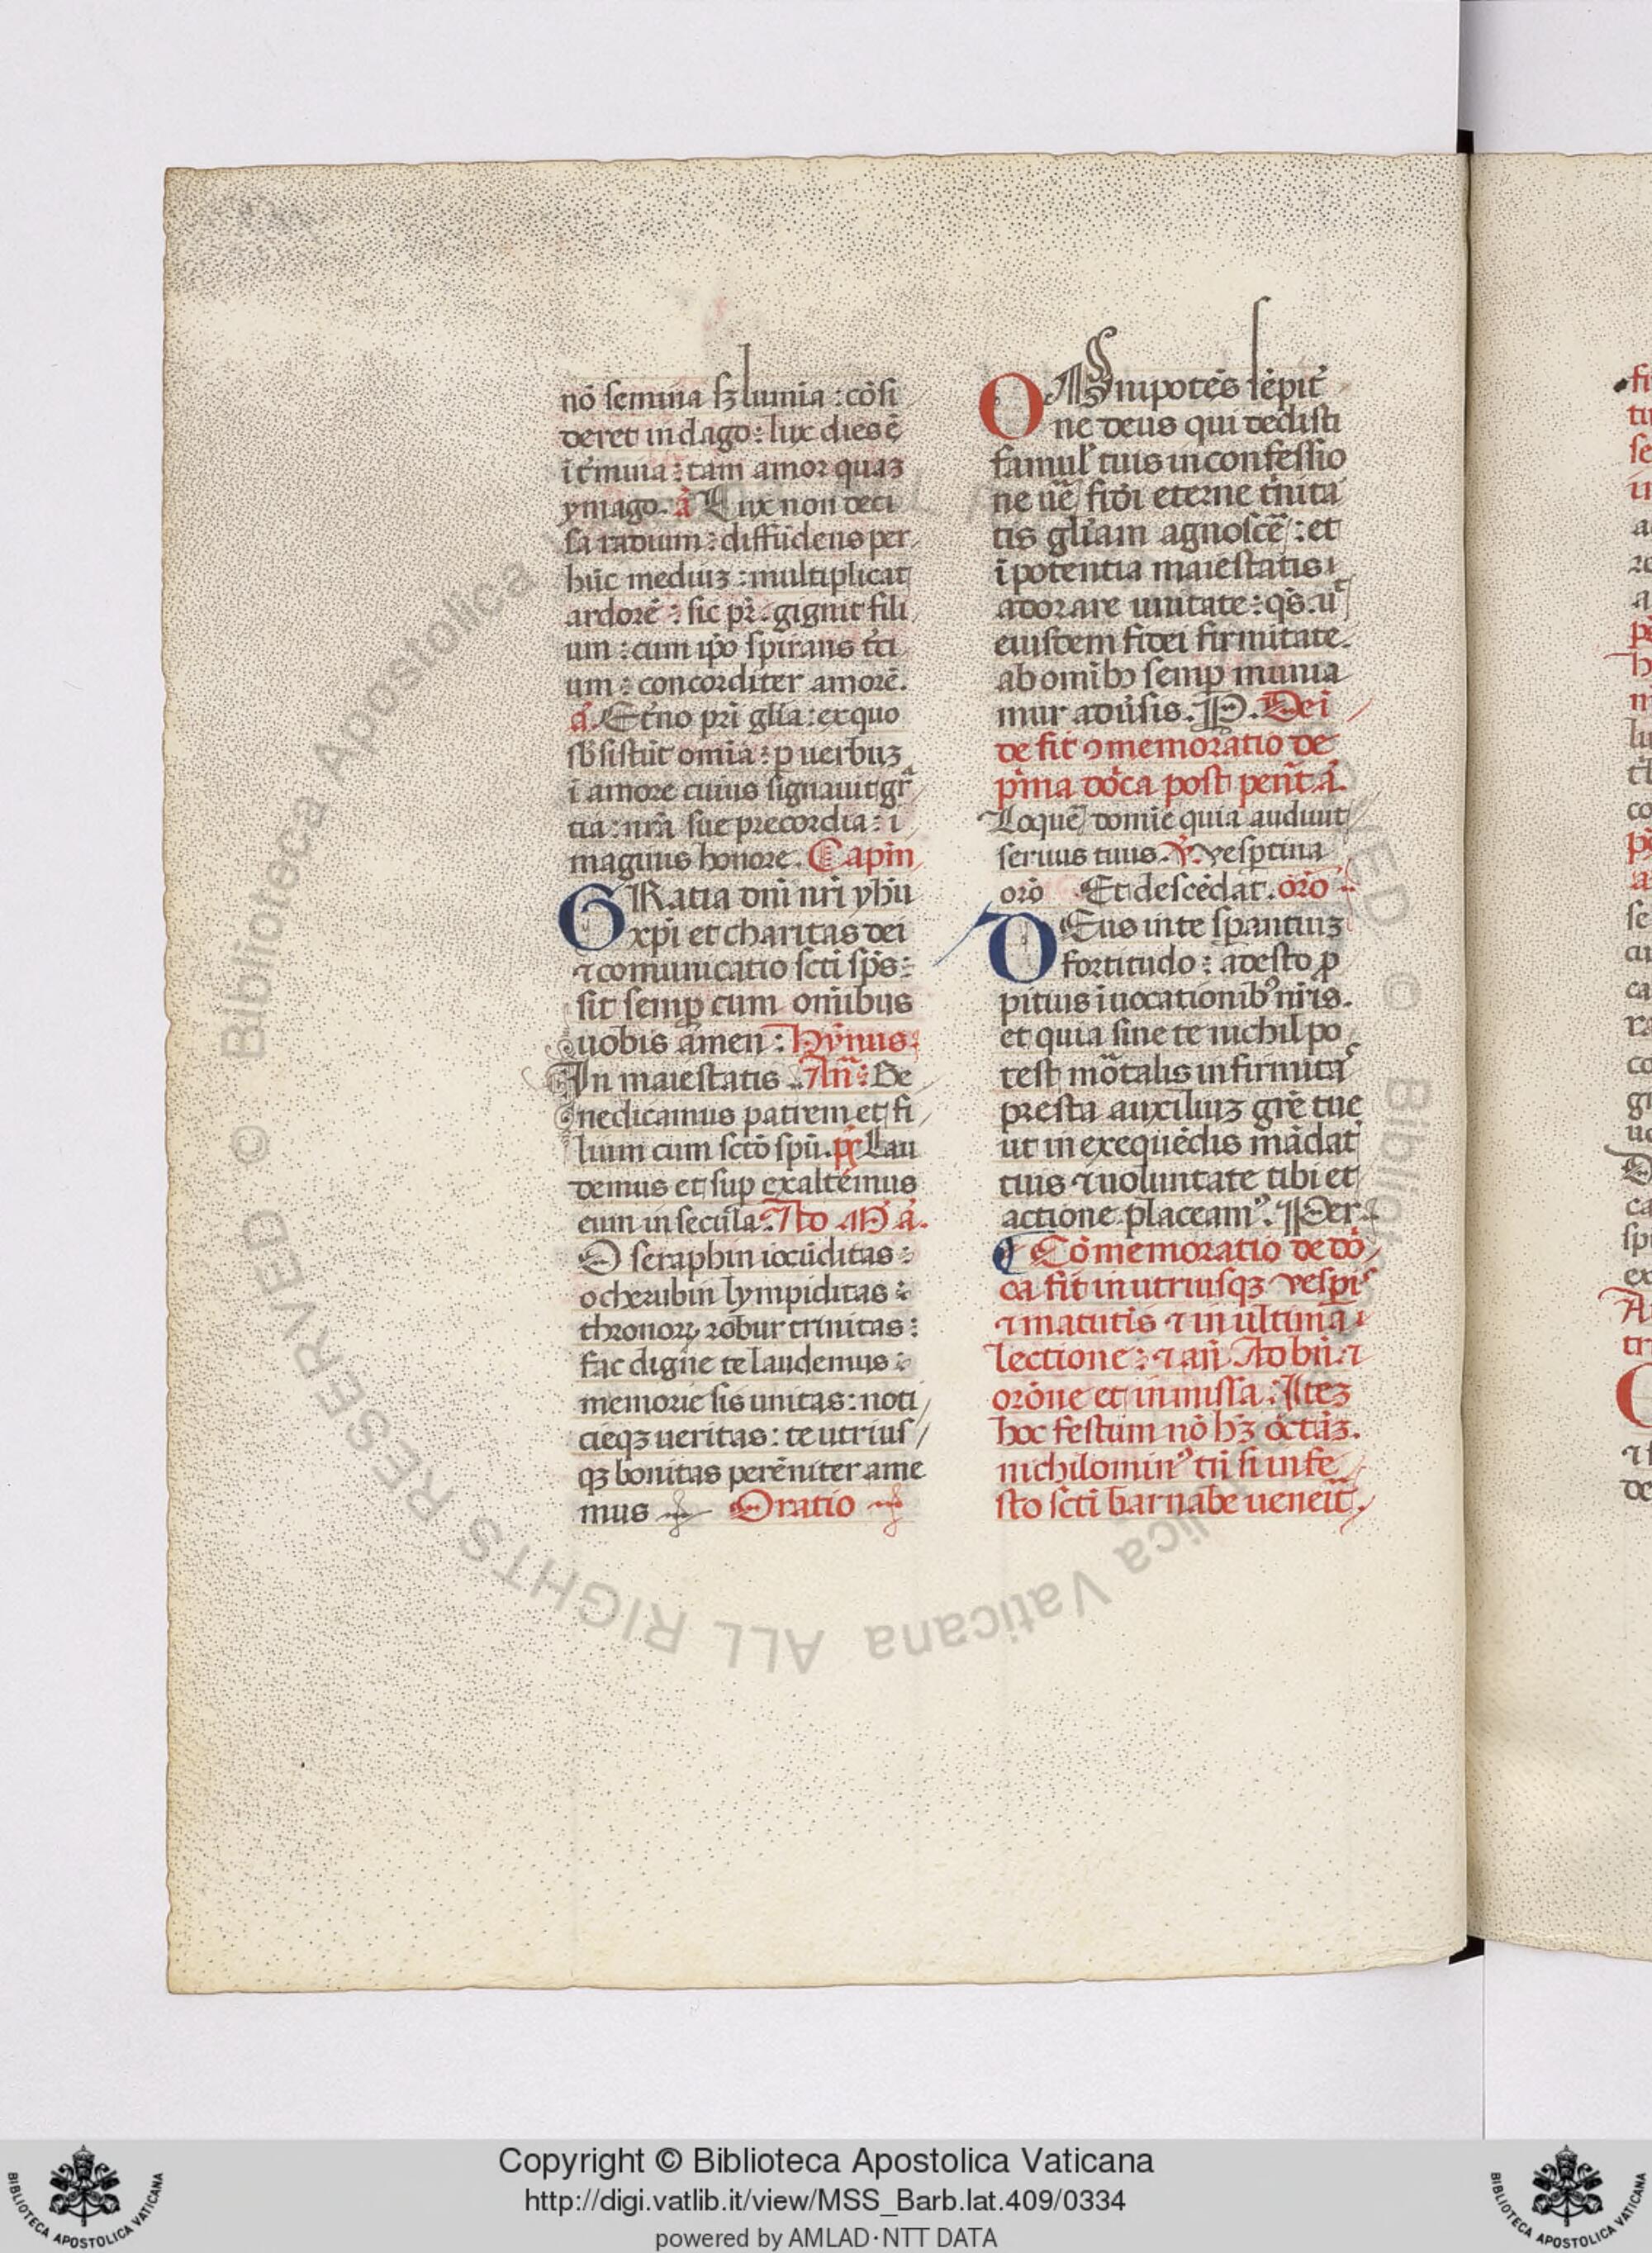 nō semina sꝫ lumīa : cōsi
deret indago : lux dies ē
īt̄minia : tam amor quaꝫ
ymago. a̅ Lux non deci
sa radium : diffūdens per
hūc mediuꝫ : multiplicat
ardorē : sic pr̄. gignit fili
um : cum ip̄o spirans t̄ci
um : concorditer amorē.
a̅. Et̄no pr̄i gl̄ia : ex quo
sb̄sistūt omīa : p uerbuꝫ
ī amore cuius signauit gr̄
tia : nr̄a sue precordia : i
maginis honore. Capim̄
GRatia dn̄i nr̄i yhū
xp̄i et charitas dei
⁊ comunicatio sct̄i sp̄s :
sit semꝑ cum omībus
uobis amen : Hȳnus.
In maiestatis. An̄ : Be
nedicamus patrem et fi
lium cum sct̄o spū. ps̄ Lau
demus et suꝑ exaltemus
eum in secula. Ad M̄ a̅.
O seraphin iocūditas :
o cherubin lympiditas :
thronoꝝ robur trinitas :
fac digne te laudemus :
memorie sis unitas : noti
cieqꝫ ueritas : te utrius
qꝫ bonitas perēniter ame
mus Oratio
OMnipotēs sēpit̄
ne deus qui dedisti
famul̄ tuis in confessio
ne ue᷑ fid̄i eterne t̄nita
tis gl̄iam agnosce᷑ : et
ī potentia maiestatis
adorare unitatē : qs̄. ut
eiusdem fidei firmitate.
ab omībꝫ semꝑ munia
mur adūsis. P. Dei
de fit ꝯmemoratio de
p̄ma dōca post pent̄. a̅.
Loque᷑ domīe quia audiuit
seruus tuus. V̄. vesꝑtina
orō Et descēdat. orō
DEus in te sꝑantiuꝫ
fortitudo : adesto ꝓ
pitius iuocationibꝰ nr̄is.
et quia sine te nichil po
test mo᷑talis infirmita᷑
presta auxiliuꝫ gr̄e tue
ut in exequēdis mādat᷑
tuis ⁊ uoluntate tibi et
actione placeamꝰ. Per
¶ Cōmemoratio de dō
ca fit in utriusqꝫ vesꝑis
⁊ matutīs ⁊ in ultima
lectione : ⁊ an̄ Ad bn̄. ⁊
orōne et in missa. Iteꝫ
hoc festum nō hꝫ octāꝫ.
nichilominꝰ tn̄ si in fe
sto sct̄i barnabe ueneīt,